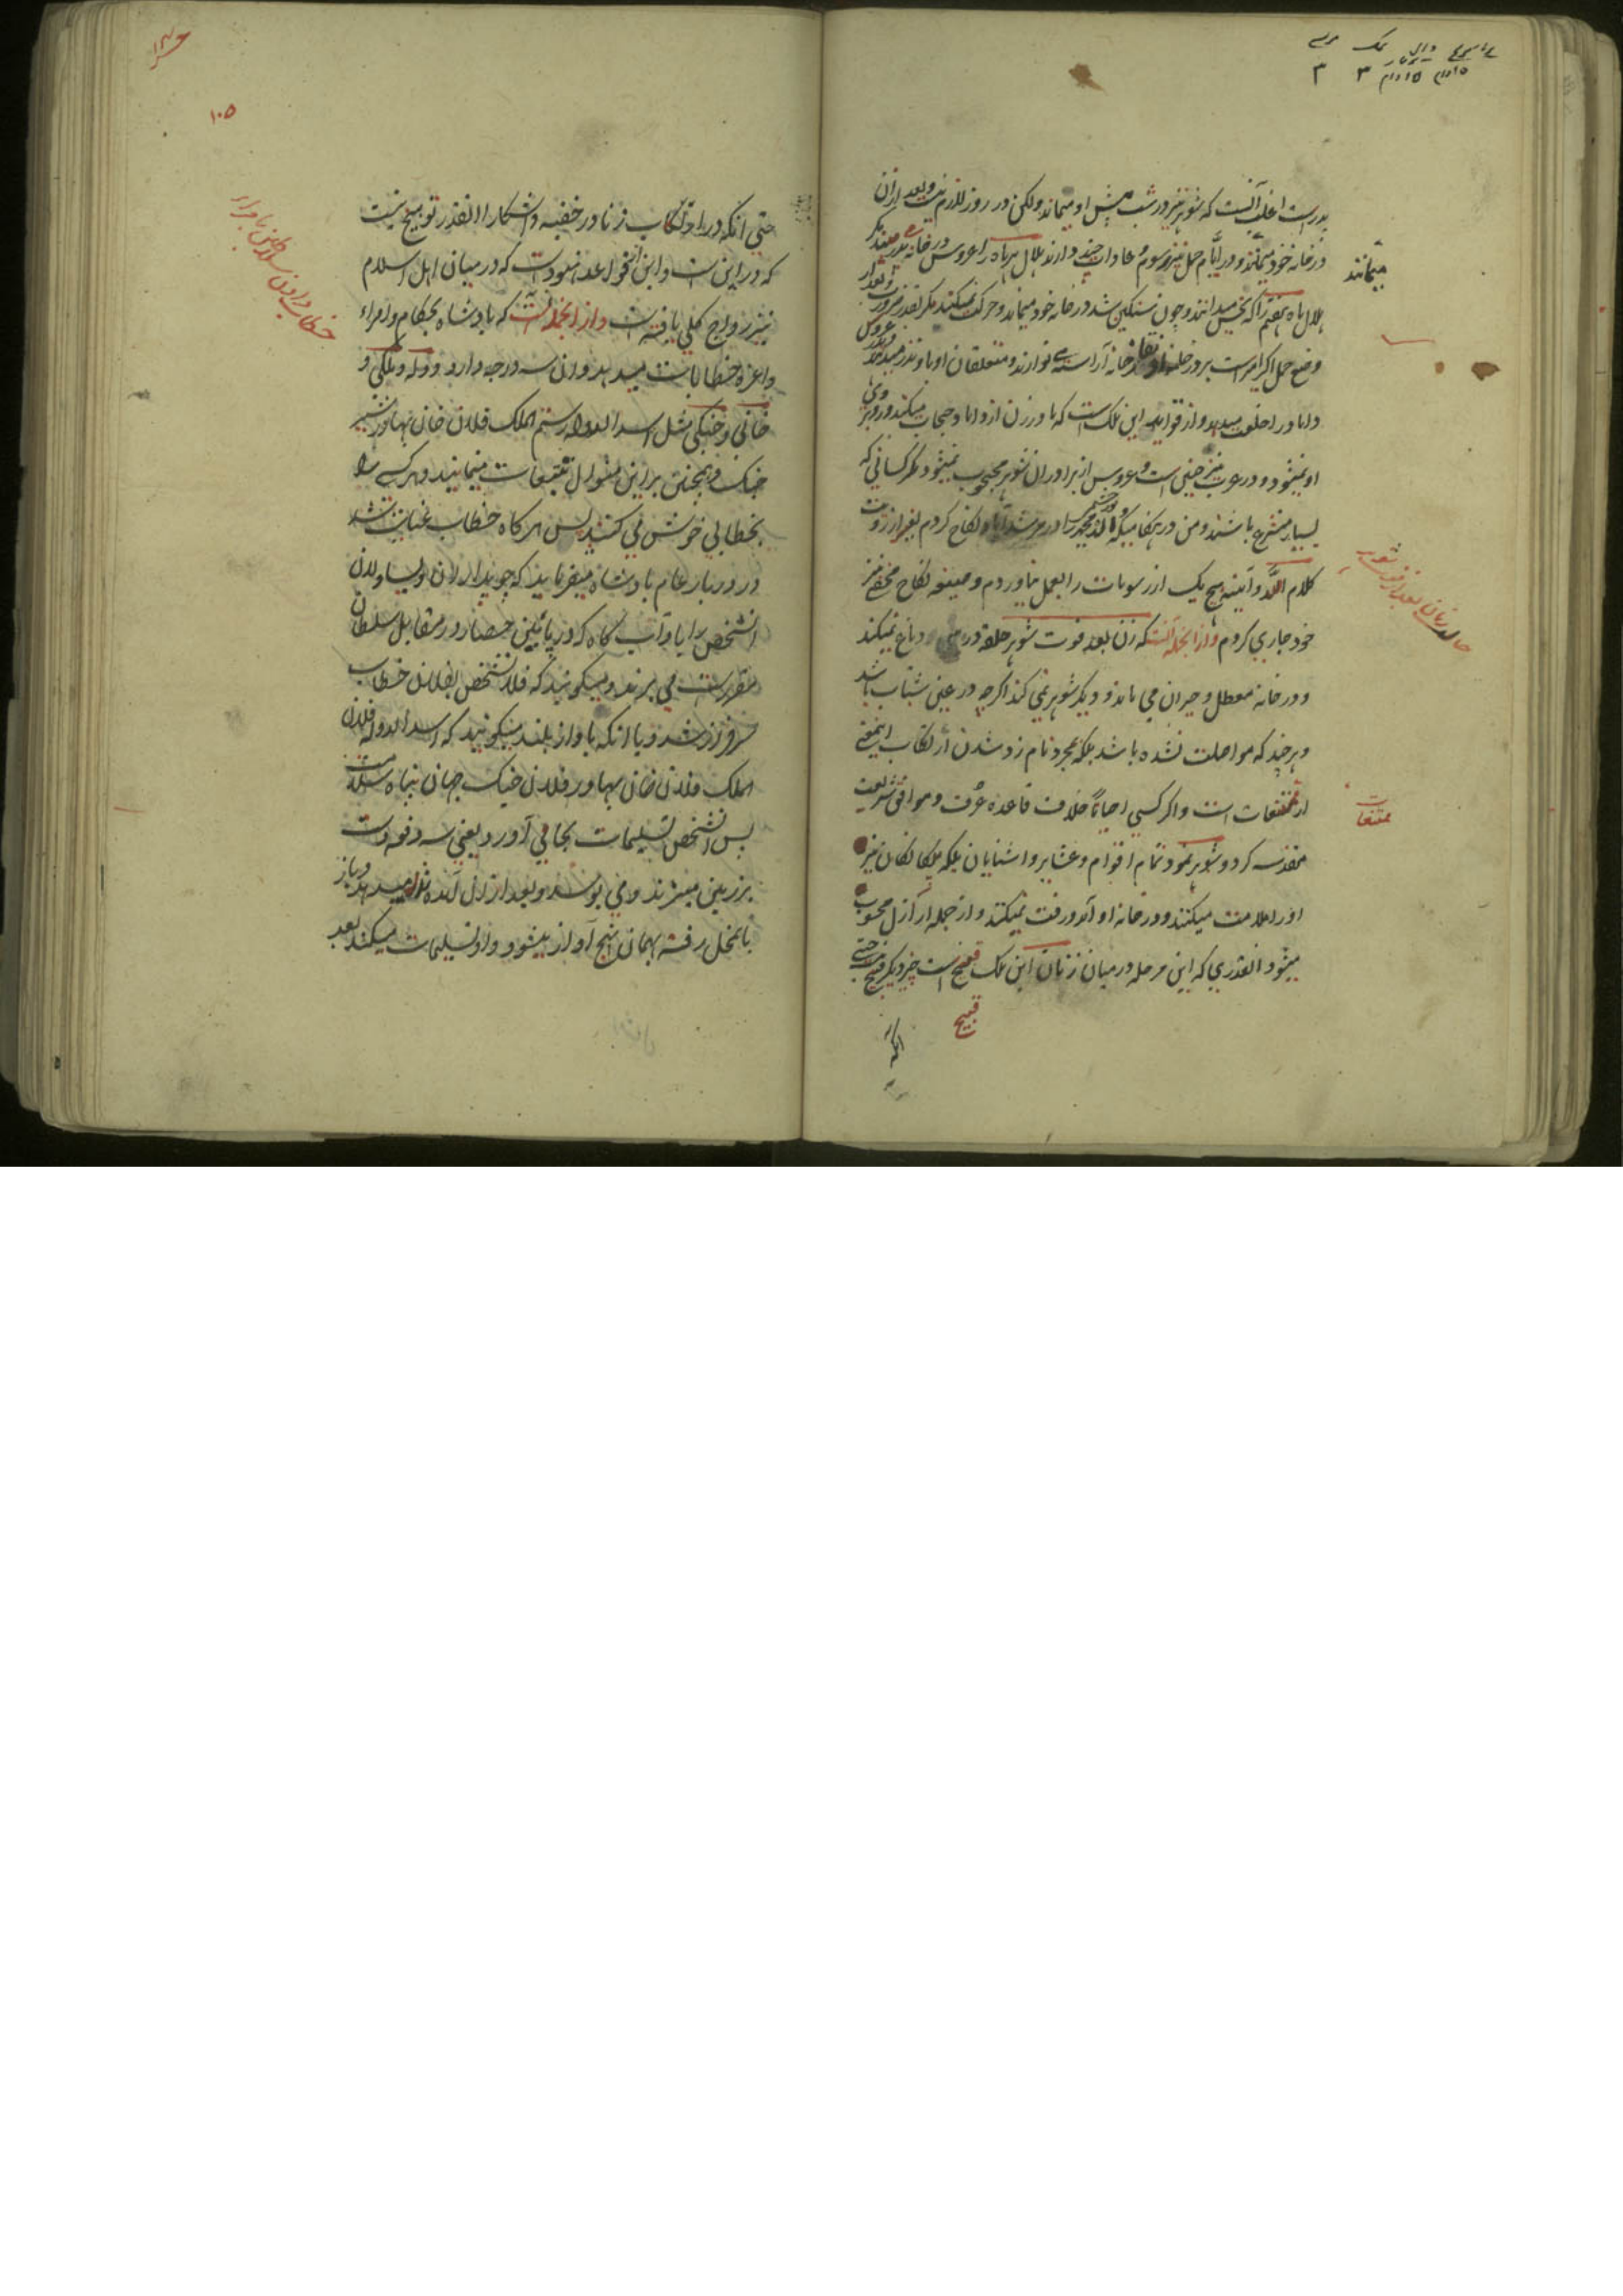 پدرست اغلب آنست که شوهر نیز در شب پیش او میماند ولکن در روز لازم نیست و بعد ازان
در خانه خود میمانند و در ایام حمل نیز رسوم و عادات چند دارند هلال هر ماه را عروس در خانه پدر میبیند مکر
هلال ماه هفتم را که نحس میدانند و چون سنکین شد در خانه خود میماند و حرکت نمیکند مکر بقدر ضرورت و بعد از
وضع حمل اکر امراست بر در خانه نقار خانه آراسته می نوازند و متعلقان او باو نذر میدهند و پدر عروس
داماد را خلعت میدهد و از قواعد این ملک است که مادر زن از داماد حجاب میکند و روبروی
او نمیشود و در عرب نیز چنین است و عروس از برادران شوهر محجوب نمیشود مکر کسانی که
بسیار متشرع باشند و من در هنکامیکه والده محمد را در مرشدآباد نکاح کردم بغیر از رویت
کلام الله و آئینه هیچ یک از رسومات را بعمل نیاوردم و صیغه نکاح را نیز
خود جاری کردم و از انجمله آنست که زن بعد فوت شوهر حلقه در دماغ نمیکند
و در خانه معطل و حیران می ماند و دیکر شوهر نمی کند اکرچه در عین شباب باشد
و هر چند که مواصلت نشده باشد بلکه بمجرد نام زد شدن ارتکاب اینمعنی
از ممتنعات است و اکر کسی احیاناً خلاف قاعده عرف و موافق شریعت
مقدسه کرد و شوهر نمود تمام اقوام و عشایر و اشنایان بلکه بیکانکان نیز
او را ملامت میکنند و در خانه او آمد و رفت نمیکنند و از جمله اراذل محسوب
میشود انقدری که این مرحله در میان زنان این ملک قبیح است چیز دیکر قبیح نیست حتی
میمانند
حالت زنان بعد از فوت شوهر
ممتنعات
قبیح
انکه
۱۰۵
حتی انکه در ارتکاب زنا در خفیه و اشکارا انقدر توبیخ نیست
که در این است و این از قواعد هنود است که در میان اهل اسلام
نیز رواج کلی یافته است و از انجمله آنست که پادشاه بحکام و امراء
و اعزه خطابات میدهد و ان سه درجه دارد دوله و ملکی و
خانی و جنکی مثل اسد الدوله رستم الملک فلان خان بهادر شیر
جنک و همچنین براین منوال تتبعات مینمایند و هر کسی را
بخطابی خوش می کنند پس هر کاه خطاب عنایت شد
در دربار عام پادشاه میفرماید که چوبداران و یساولان
انشخص را باداب کاه که در پائین حصار در مقابل سلطان
مقرر است می برند و میکویند که فلانشخص بفلان خطاب
سرفراز شد و یا انکه باواز بلند میکویند که اسد الدوله فلان
الملک فلان خان بهادر فلان جنک جهان پناه سلامت
پس انشخص تسلیمات بجا می آورد یعنی سه دفعه دست
بر زمین میزند و می بوسد و بعد ازان آمده نذر میدهد و باز
بانمحل رفته بهمان نهج آواز میشود و او تسلیمات میکند بعد
خطاب دادن سلاطین بامراء